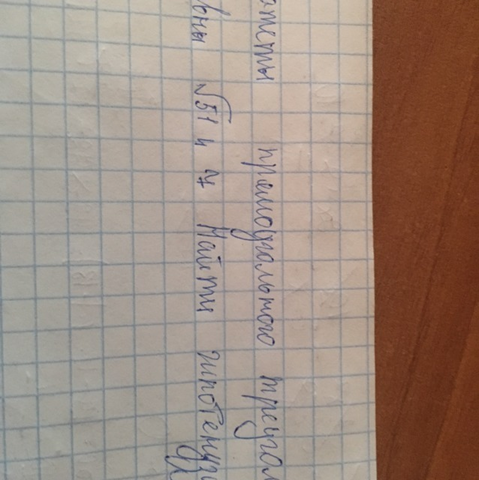 атеты прямоугольного треугол
вны √51 и 7 Найти гипотенузу